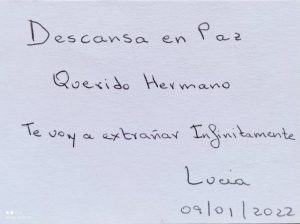 Descansa en Paz
Querido Hermano
Te voy a extrañar Infinitamente
Lucia
09/01/2022